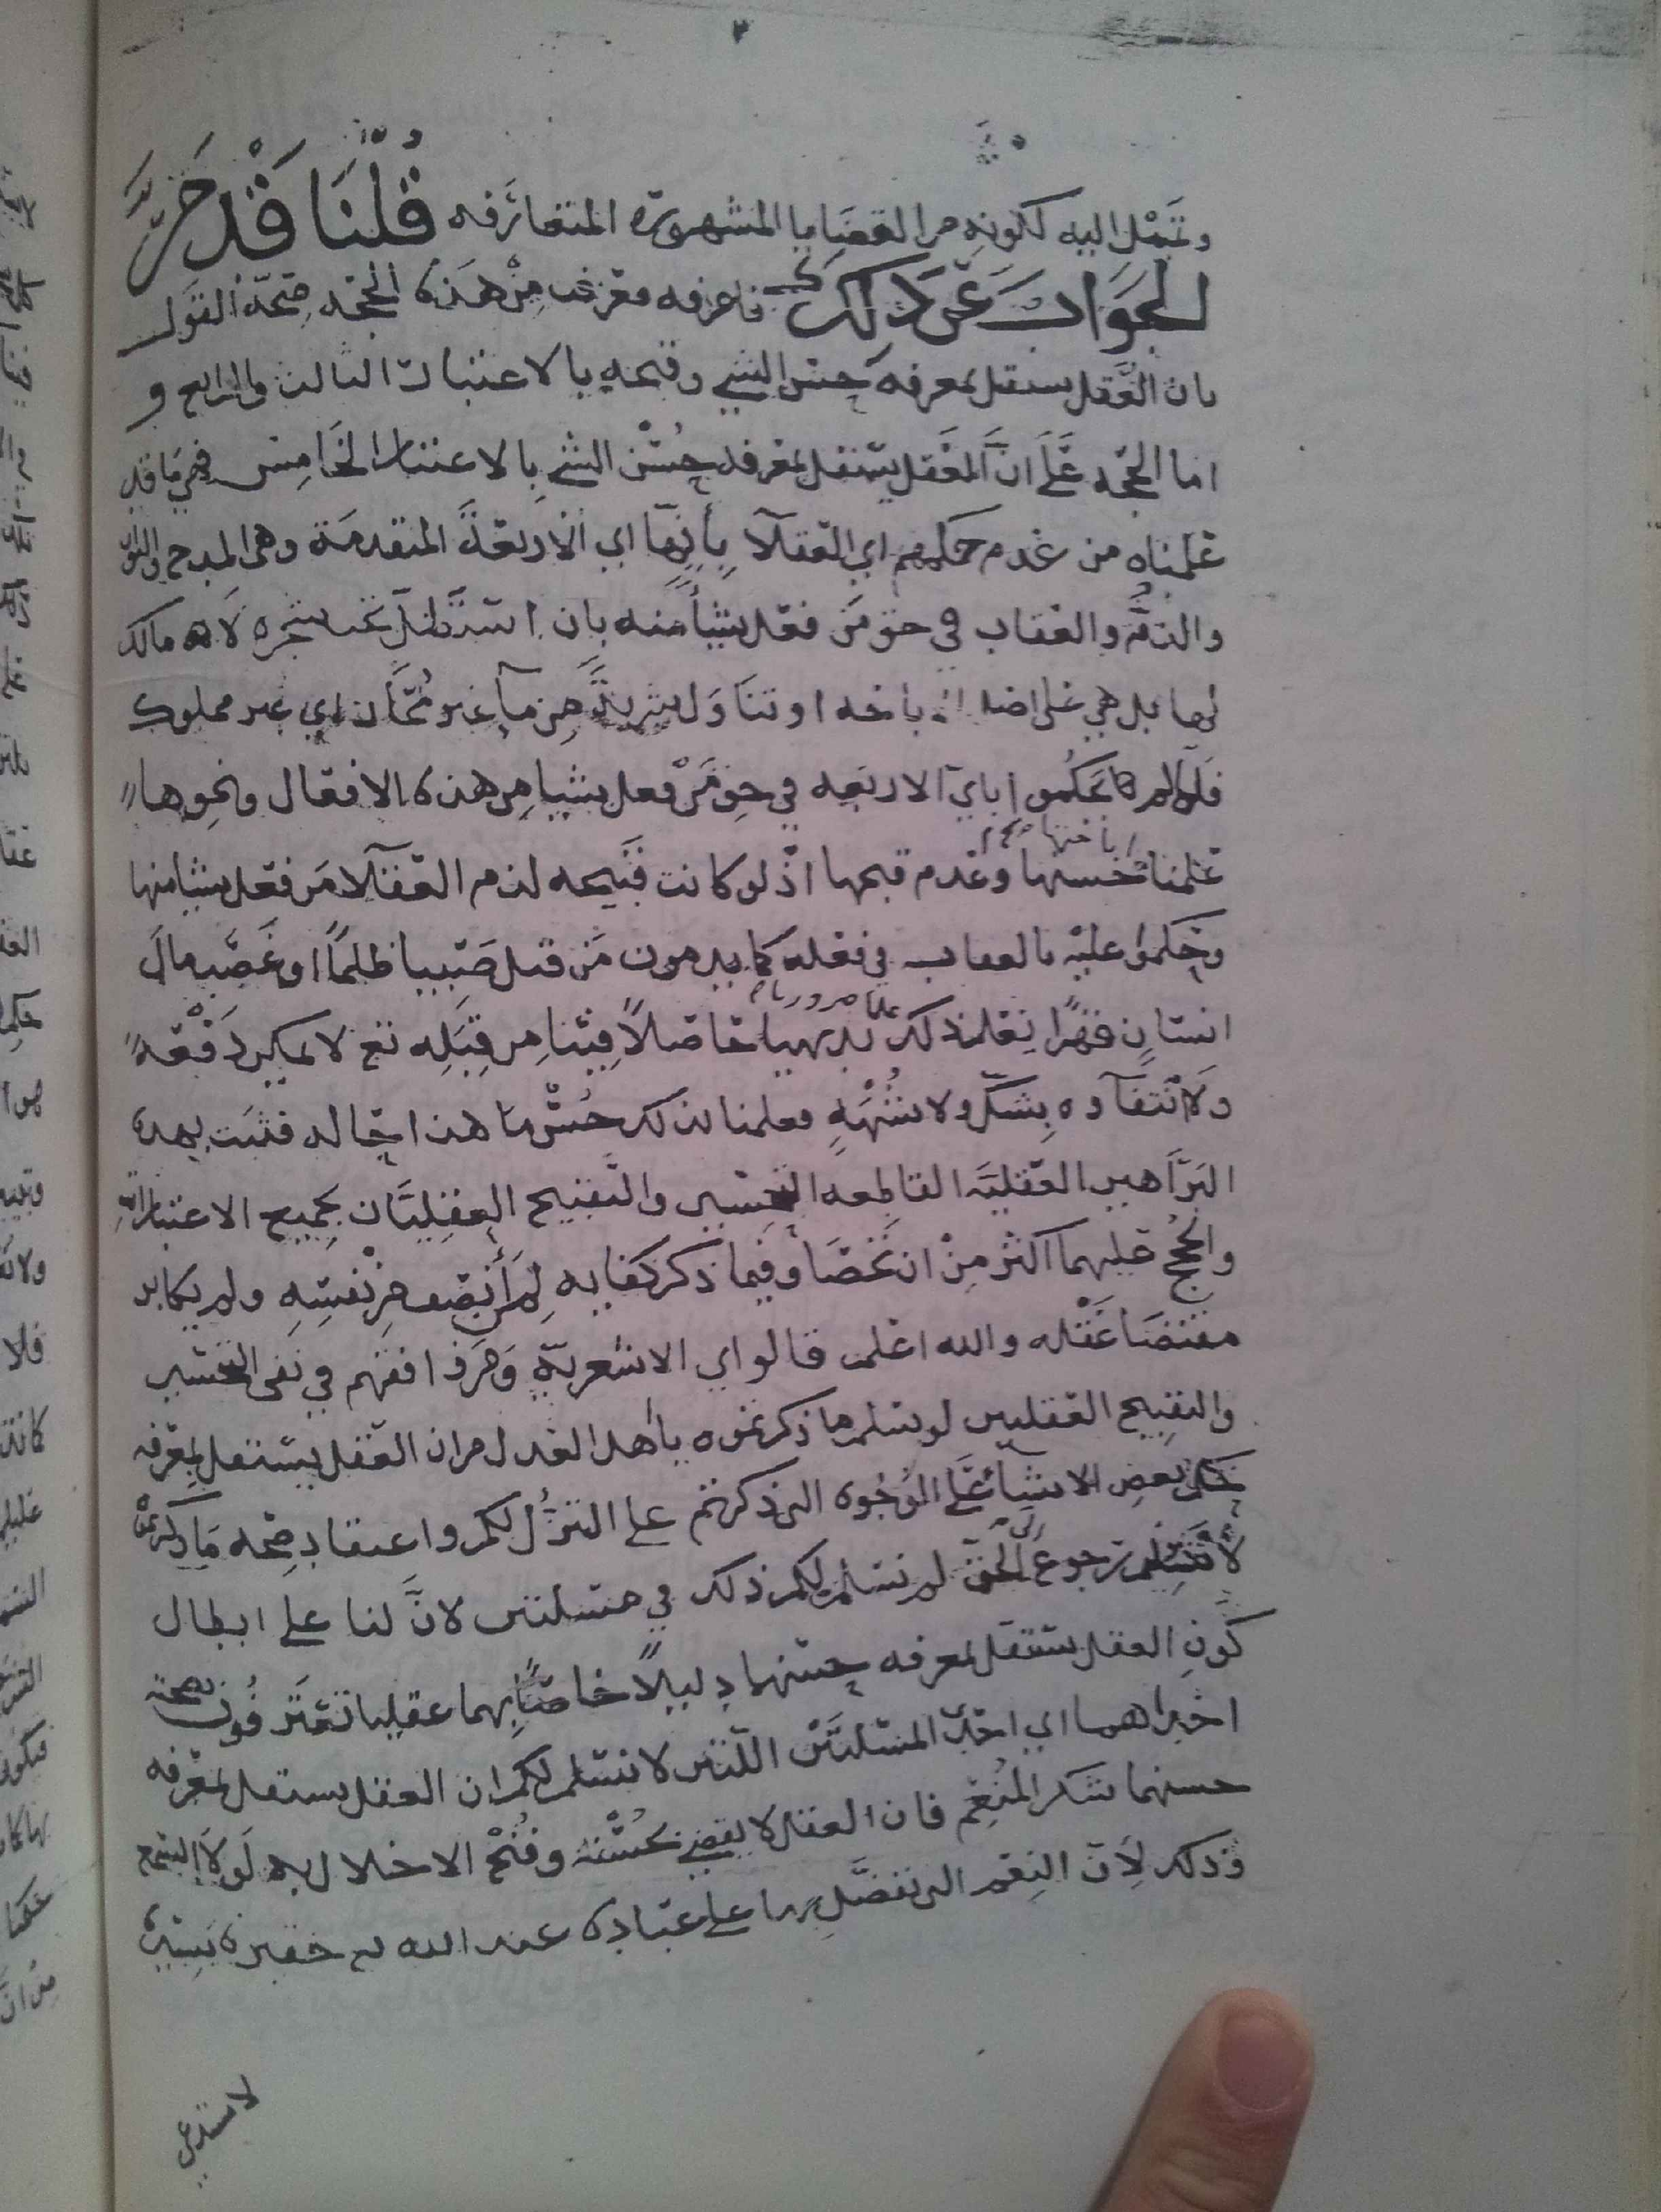 وتميل اليه لكونه من القضايا المشهورة المتعارفه قُلْنَا قَدْ مَرَّ
الجَوَابُ عَنْ ذَلِكَ فاعرفه فعرفت مِنْ هَذِه الحجه صِحّة القَول
بان العَقل يستقل بمعرفة حسن الشي وقبحه بالاعتبارات الثالث والرابع و
اما الحجه عَلَى انَّ العَقل يستقل بمعرفة حُسْن الشي بِالاعتبار الخَامِس فهي مَا قد
عَلمناه من عَدم حكمهم اي العقلآ بِأَيِّهَا اي الاربعَة المتقدمَة وهي المدح والثواب
والذمُّ والعقاب في حق مَن فعَل شيئاً منه بان استظل تحت شجره لا مالك
لها بل هي على اصل الاباحه او تناوَل شربةً مِن مآ غير مُحَاز اي غير مملوك
فلما لم يحكموا باي الاربعه في حق مَنْ فعل شيا مِن هذه الافعال ونحوِها
عَلمنا اباحتها وحسنها وعَدم قبحها اذ لو كانت قبيحه لذم العقلآ مَن فعَل شيا منها
وحَكموا عليْه بالعقاب في فعله كما يذمون مَن قتل صَبيا ظلمًا او غصَبَ مالَ
انسَانٍ قهرًا نعْلم ذلك علما ضروريا بديهيا حَاصلاً فينا مِن قِبَلِه تع لا يمكن دَفْعَه
ولا انتفآوه بِشَكٍّ ولا شُبْهَةٍ فعلمنا بذلك حُسْن مَا هذا حَاله فثبَت بهذه
البَرَاهين العَقليَه القاطعه التحسين والتقبيح العقليَّان بجميع الاعتبارات
والحُجج عَليهما اكثر مِنْ ان تُحْصَا وفيما ذكر كفايه لِمَن أنصَف مِن نفسِه ولم يكابر
مقتضَا عَقْله والله اعلم قالوا اي الاشعرية وَمَن وافقهم في نفي التحسين
والتقبيح العَقليين لو سلم ما ذكرتموه يا أهل العَدل من ان العَقل يستقل بمعرفه
حكم بعض الاشيآ عَلَى الوُجُوه التي ذكرتم على التنزُّل لكم واعتقاد صِحه مَا ذكرتم
لا تسليم رجوع الى الحَق لم نسَلم لكم ذلك في مسئلتين لانَّ لنا على ابطال
كَونِ العقل يستقل بمعرفه حسنهما دليلاً خاصًّا بهما عقليا تعترَفُون بصحته
احداهما اي احدى المسئلتَيْن اللتين لا نسَلم لكم ان العَقل يستقل بمعرفه
حسنهما شكر المُنعِم فان العقل لا يقضي بحُسْنه وقُبْح الاخلال به لَولا السمع
وذلك لاَن النِعَم التي تفضَّل بها على عبَاده عند الله تع حَقيرة يَسِيره
لا ستدعي